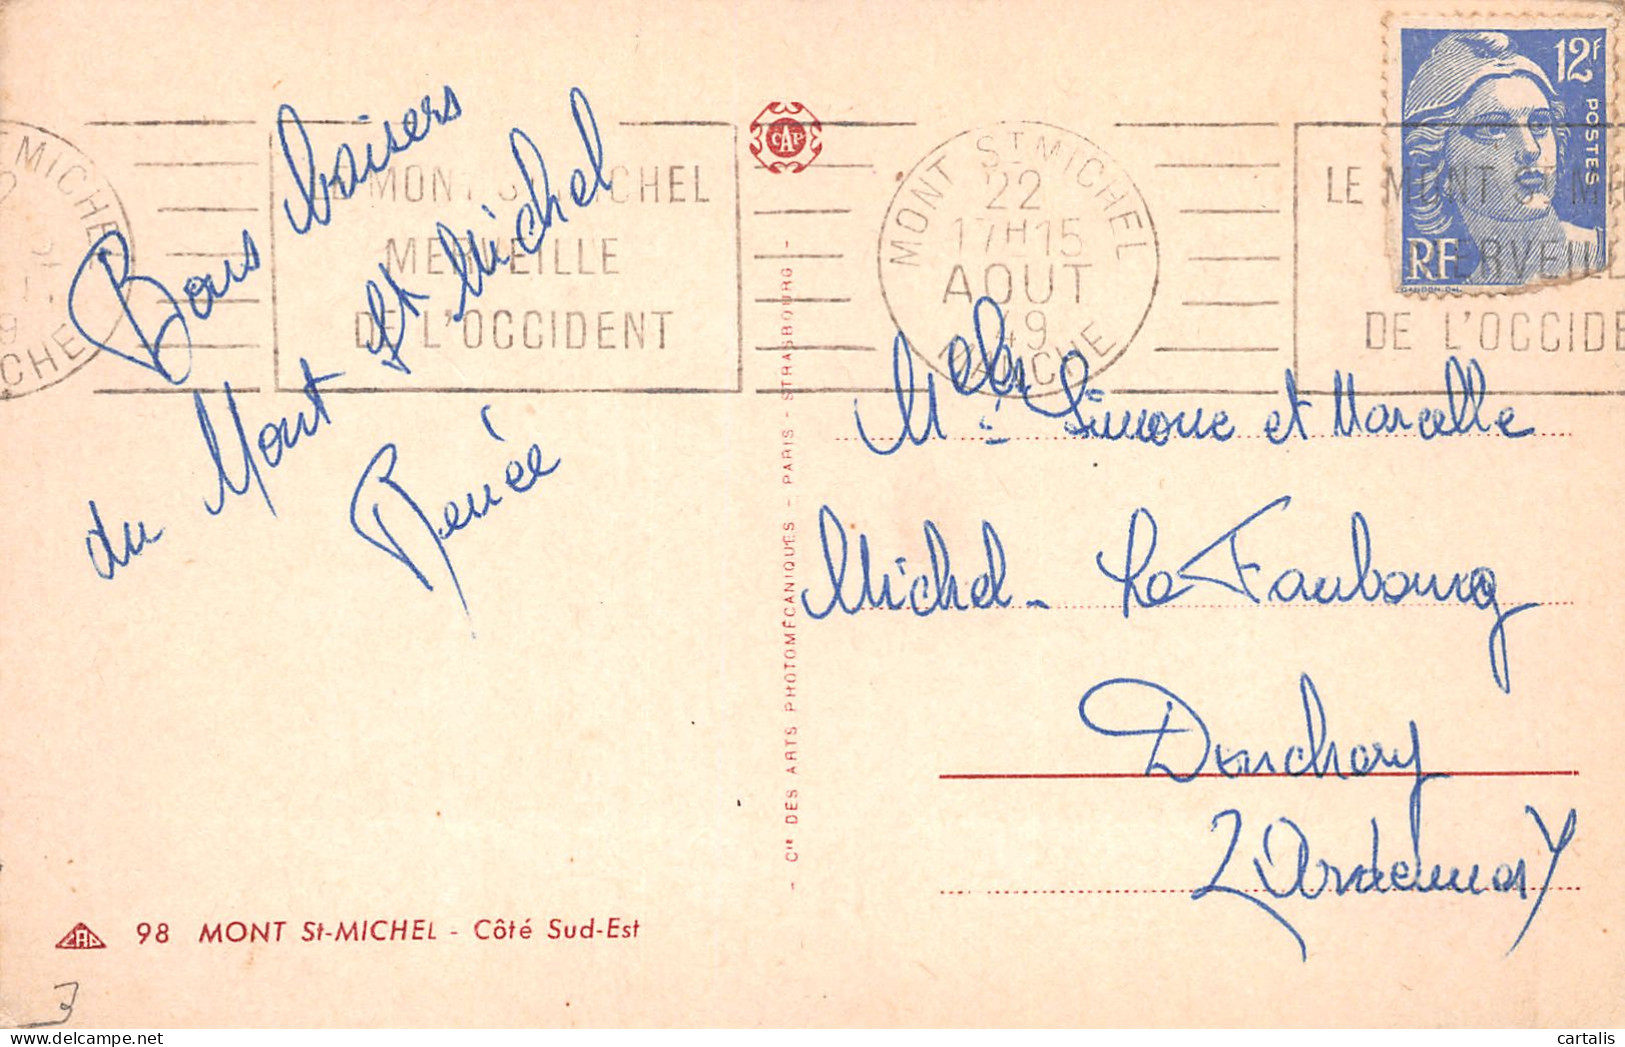 Bons baisers
du Mont St Michel
Renée
MONT ST MICHEL
22
17H15
AOUT
49
MANCHE
MERVEILLE
DE L'OCCIDENT
LE MONT ST MI
MERVEILLE
DE L'OCCIDE
12F
POSTES
RF
GANDON DEL.
CAP
Melles Simone et Marcelle
Michel - Le Faubourg
Donchery
(Ardennes)
Cie DES ARTS PHOTOMÉCANIQUES - PARIS - STRASBOURG -
CAP
98 MONT St-MICHEL - Côté Sud-Est
3
cartalis